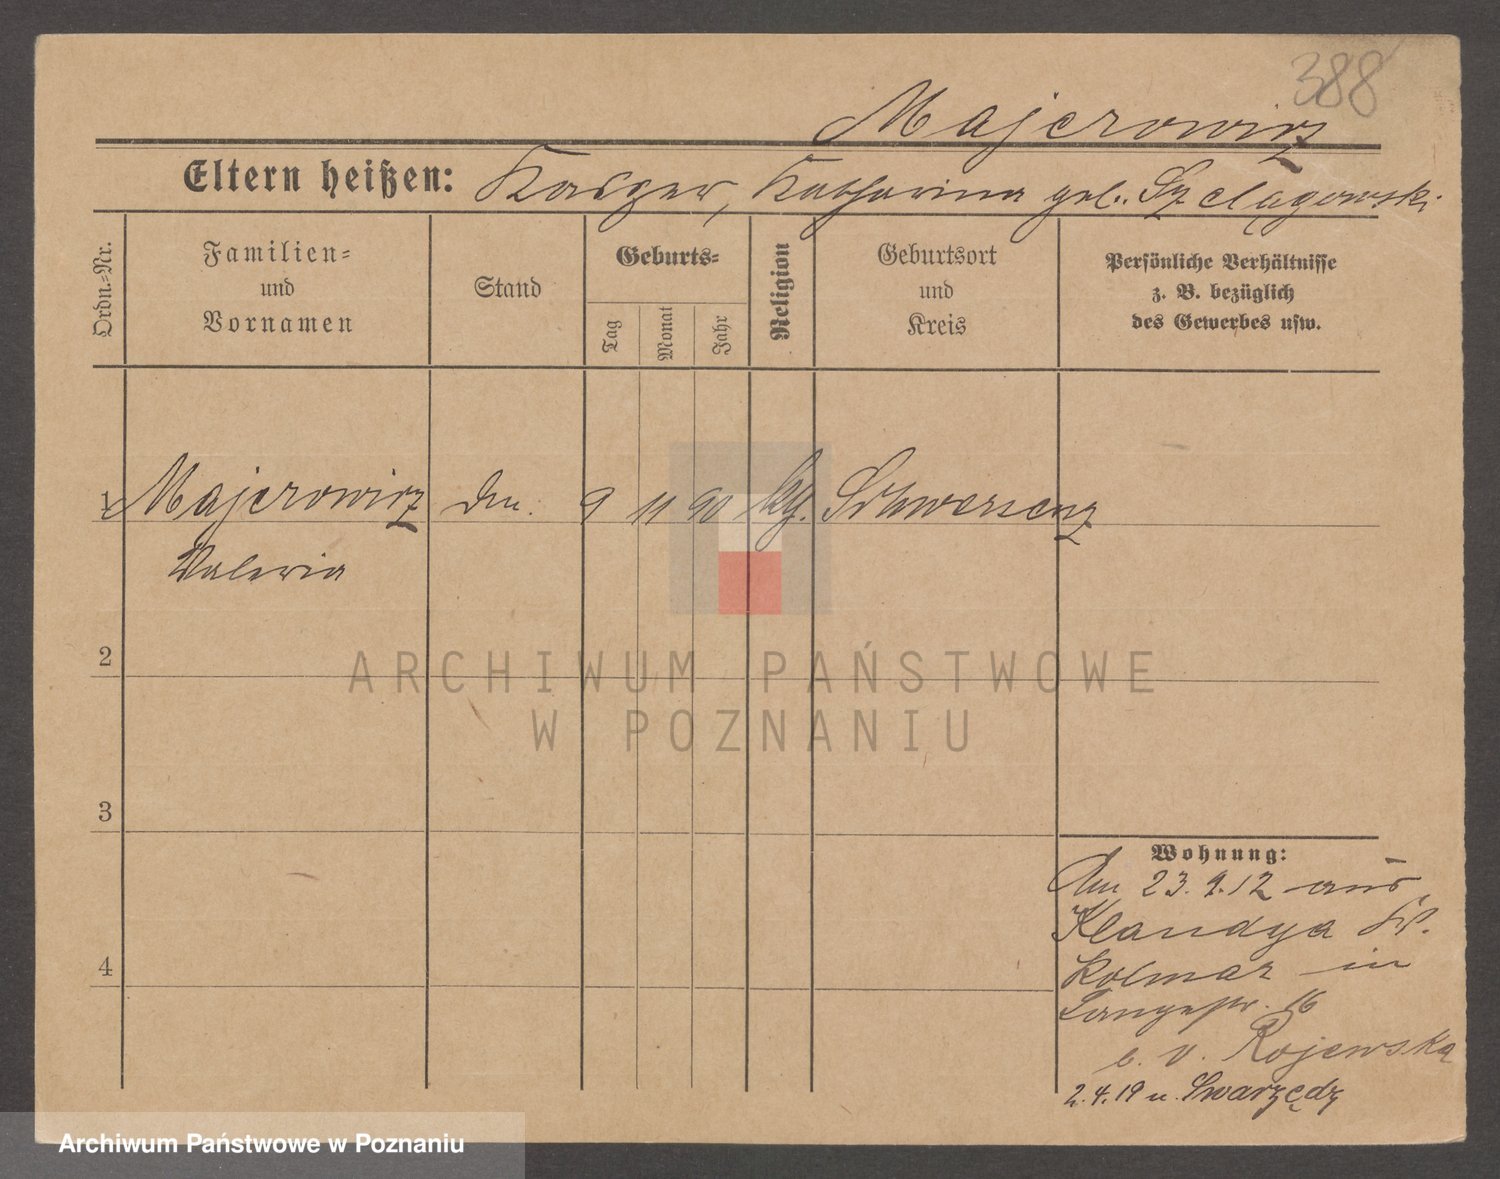 388
Majerowicz
Eltern heißen: Kasper, Katharina geb. Szelągowski
Ordn.=Nr.
Familien=
und
Vornamen
Stand
Geburts=
Tag
Monat
Jahr
Religion
Geburtsort
und
Kreis
Persönliche Verhältnisse
z. B. bezüglich
des Gewerbes usw.
1 Majerowicz 9 11 90 kth. Schwersenz
Valeria
2
3
4
Wohnung:
Am 23.9.12 aus
Kolmar in
Langestr. 16
b. v. Rojewska
2.4.19 n. Swarzędz
ARCHIWUM PAŃSTWOWE
W POZNANIU
Archiwum Państwowe w Poznaniu